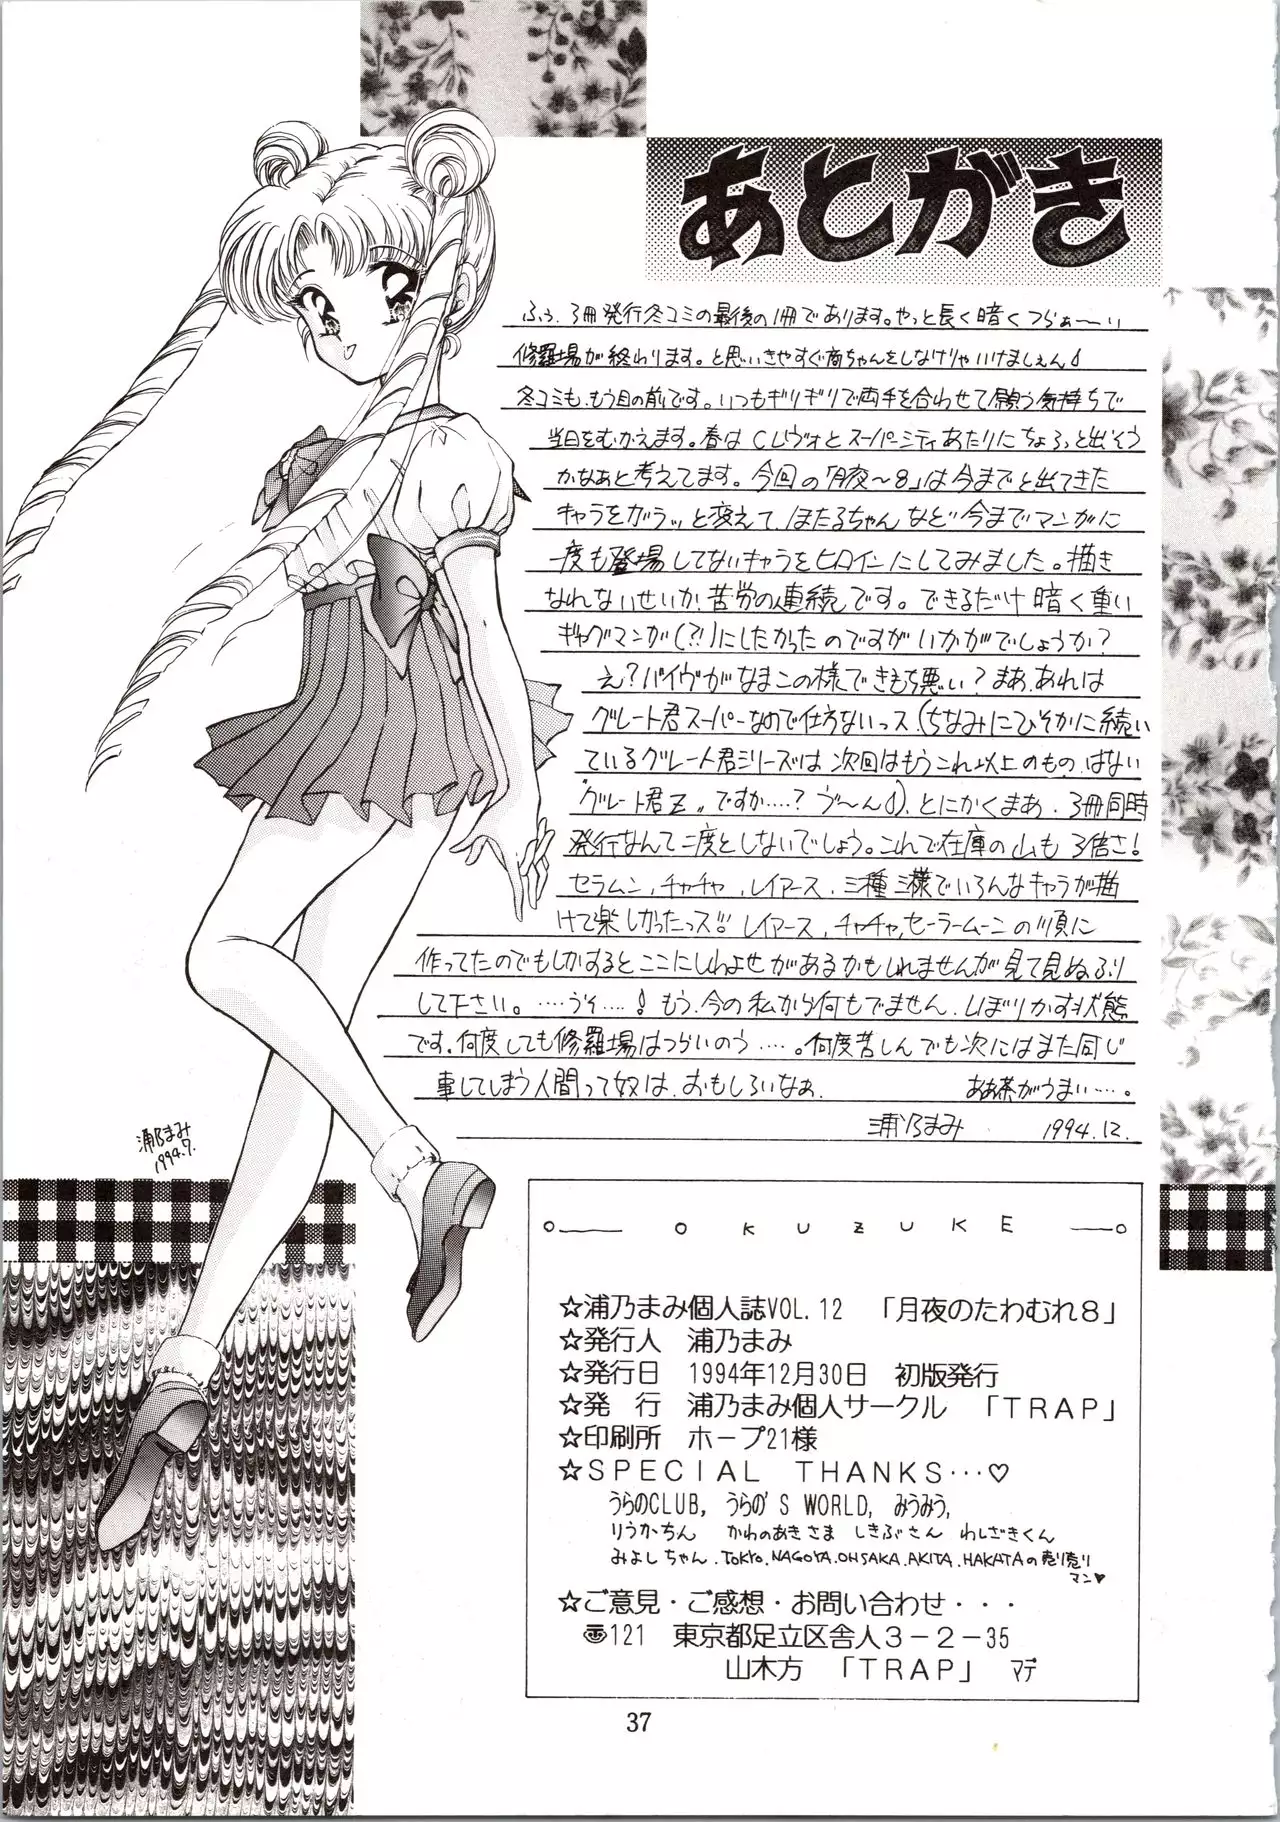 あとがき
ふぅ、3冊発行冬コミの最後の1冊であります。やっと長く暗くつらぁ～い
修羅場が終わります。と思いきやすぐ商ちゃんをしなけりゃいけましぇん
冬コミも、もう目の前です。いつもギリギリで両手を合わせて願う気持ちで
当日をむかえます。春はCレヴォとスーパーシティあたりにちょろっと出よう
かなぁと考えてます。今回の「月夜～8」は今までと出てきた
キャラをガラッと変えて、ほたるちゃんなど今までマンガに
一度も登場してないキャラをヒロインにしてみました。描き
なれないせいか、苦労の連続です。できるだけ暗く重い
ギャグマンガ(?!)にしたかったのですがいかがでしょうか?
え?バイヴがなまこの様できもち悪い?まぁ、あれは
グレート君スーパーなので仕方ないっス、(ちなみにひそかに続い
ているグレート君シリーズは、次回はもうこれ以上のもの、はない
"グレート君Z"ですか……?ゔ～ん)、とにかくまぁ、3冊同時
発行なんて二度としないでしょう。これで在庫の山も3倍さ!
セラムン、チャチャ、レイアース、三種三様でいろんなキャラが描
けて楽しかったっス!!レイアース、チャチャ、セーラームーンの順に
作ってたのでもしかするとここにしわよせがあるかもしれませんが見て見ぬふり
して下さい。……うそ……!もう、今の私から何もでません、しぼりかす状態
です。何度しても修羅場はつらいのう……。何度苦しんでも次にはまた同じ
事してしまう人間って奴は、おもしろいなぁ。 ああ茶がうまい……。
浦乃まみ 1994.12.
浦乃まみ
1994.7.
OKUZUKE
☆浦乃まみ個人誌VOL.12 「月夜のたわむれ8」
☆発行人 浦乃まみ
☆発行日 1994年12月30日 初版発行
☆発 行 浦乃まみ個人サークル 「TRAP」
☆印刷所 ホープ21様
☆SPECIAL THANKS…♡
うらのCLUB, うらの'S WORLD, みうみう,
りうかちん かわのあきさま しきぶさん わしざきくん
みよしちゃん.TOKYO.NAGOYA.OHSAKA.AKITA.HAKATAの売り売り
マン♥
☆ご意見・ご感想・お問い合わせ・・・
〠121 東京都足立区舎人3-2-35
山木方 「TRAP」 マデ
37